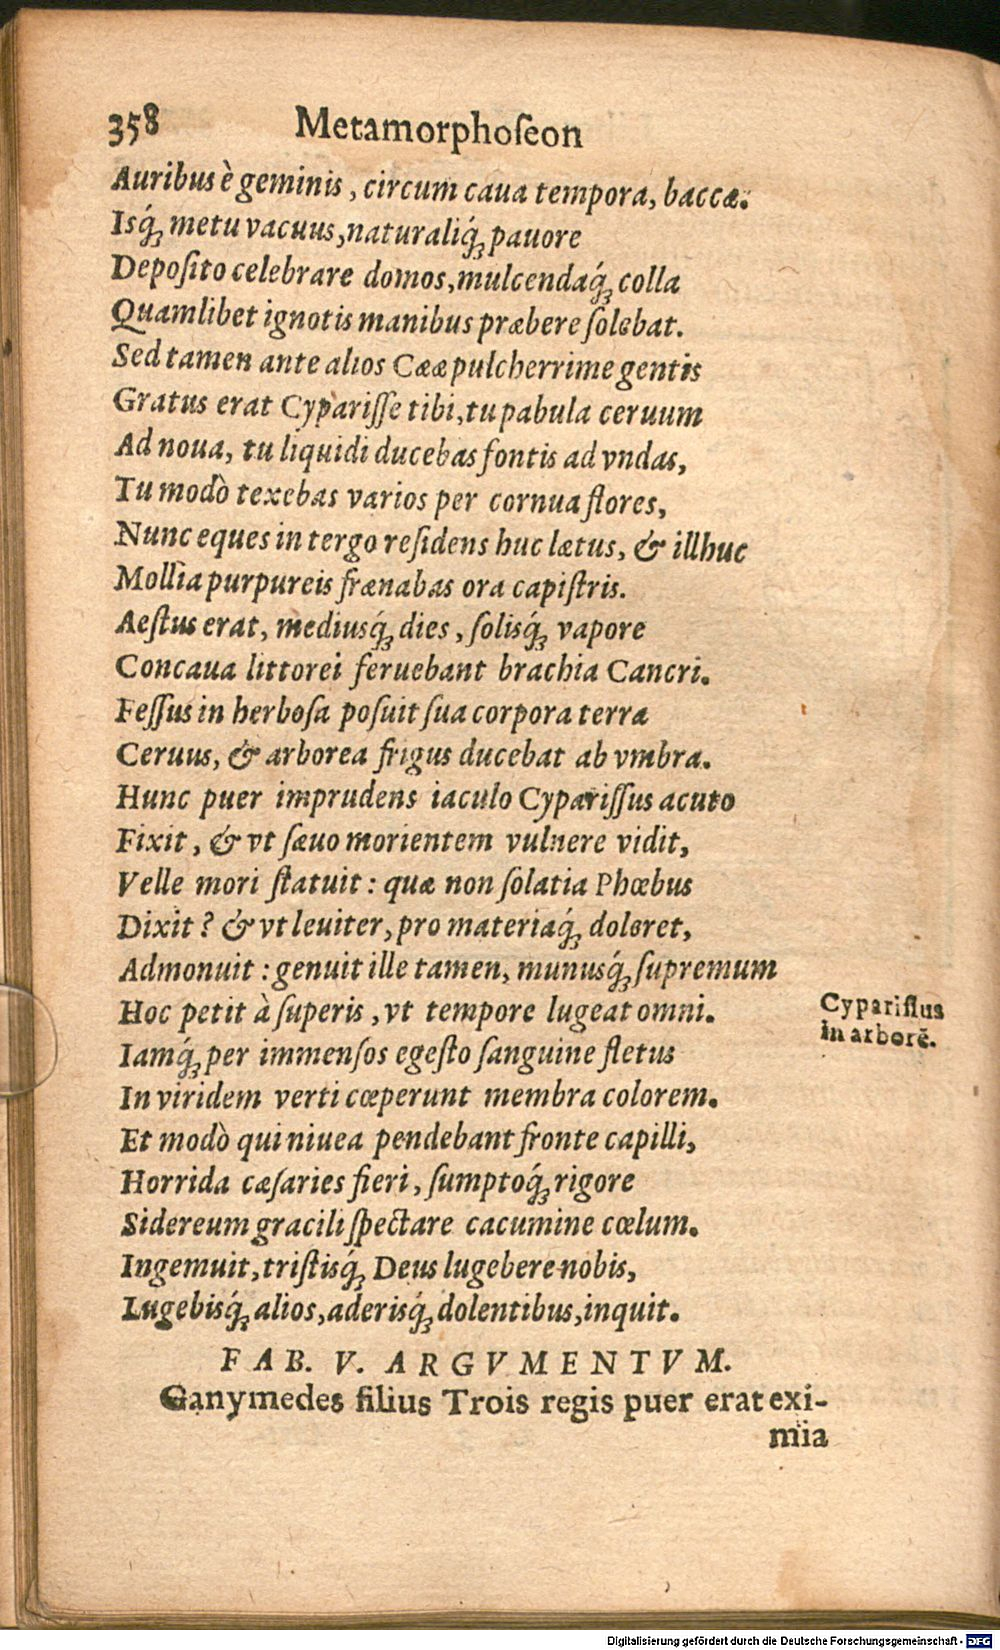 358 Metamorphoſeon
Auribus è geminis, circum caua tempora, baccæ.
Isq́ꝫ metu vacuus, naturaliq́ꝫ pauore
Depoſito celebrare domos, mulcendaq́ꝫ colla
Quamlibet ignotis manibus præbere ſolebat.
Sed tamen ante alios Cææ pulcherrime gentis
Gratus erat Cypariſſe tibi, tu pabula ceruum
Ad noua, tu liquidi ducebas fontis ad vndas,
Tu modò texebas varios per cornua flores,
Nunc eques in tergo reſidens huc lætus, & illhuc
Mollia purpureis frænabas ora capiſtris.
Aeſtus erat, mediusq́ꝫ dies, ſolisq́ꝫ vapore
Concaua littorei feruebant brachia Cancri.
Feſſus in herboſa poſuit ſua corpora terra
Ceruus, & arborea frigus ducebat ab vmbra.
Hunc puer imprudens iaculo Cypariſſus acuto
Fixit, & vt ſæuo morientem vulnere vidit,
Velle mori ſtatuit: quæ non ſolatia Phœbus
Dixit? & vt leuiter, pro materiaq́ꝫ doleret,
Admonuit: genuit ille tamen, munusq́ꝫ ſupremum
Hoc petit à ſuperis, vt tempore lugeat omni.
Cypariſſus
in arborē.
Iamq́ꝫ per immenſos egeſto ſanguine fletus
In viridem verti cœperunt membra colorem.
Et modò qui niuea pendebant fronte capilli,
Horrida cæſaries fieri, ſumptoq́ꝫ rigore
Sidereum gracili ſpectare cacumine cœlum.
Ingemuit, triſtisq́ꝫ Deus lugebere nobis,
Lugebisq́ꝫ alios, aderisq́ꝫ dolentibus, inquit.
FAB. V. ARGVMENTVM.
Ganymedes filius Trois regis puer erat exi-
mia
Digitalisierung gefördert durch die Deutsche Forschungsgemeinschaft - DFG